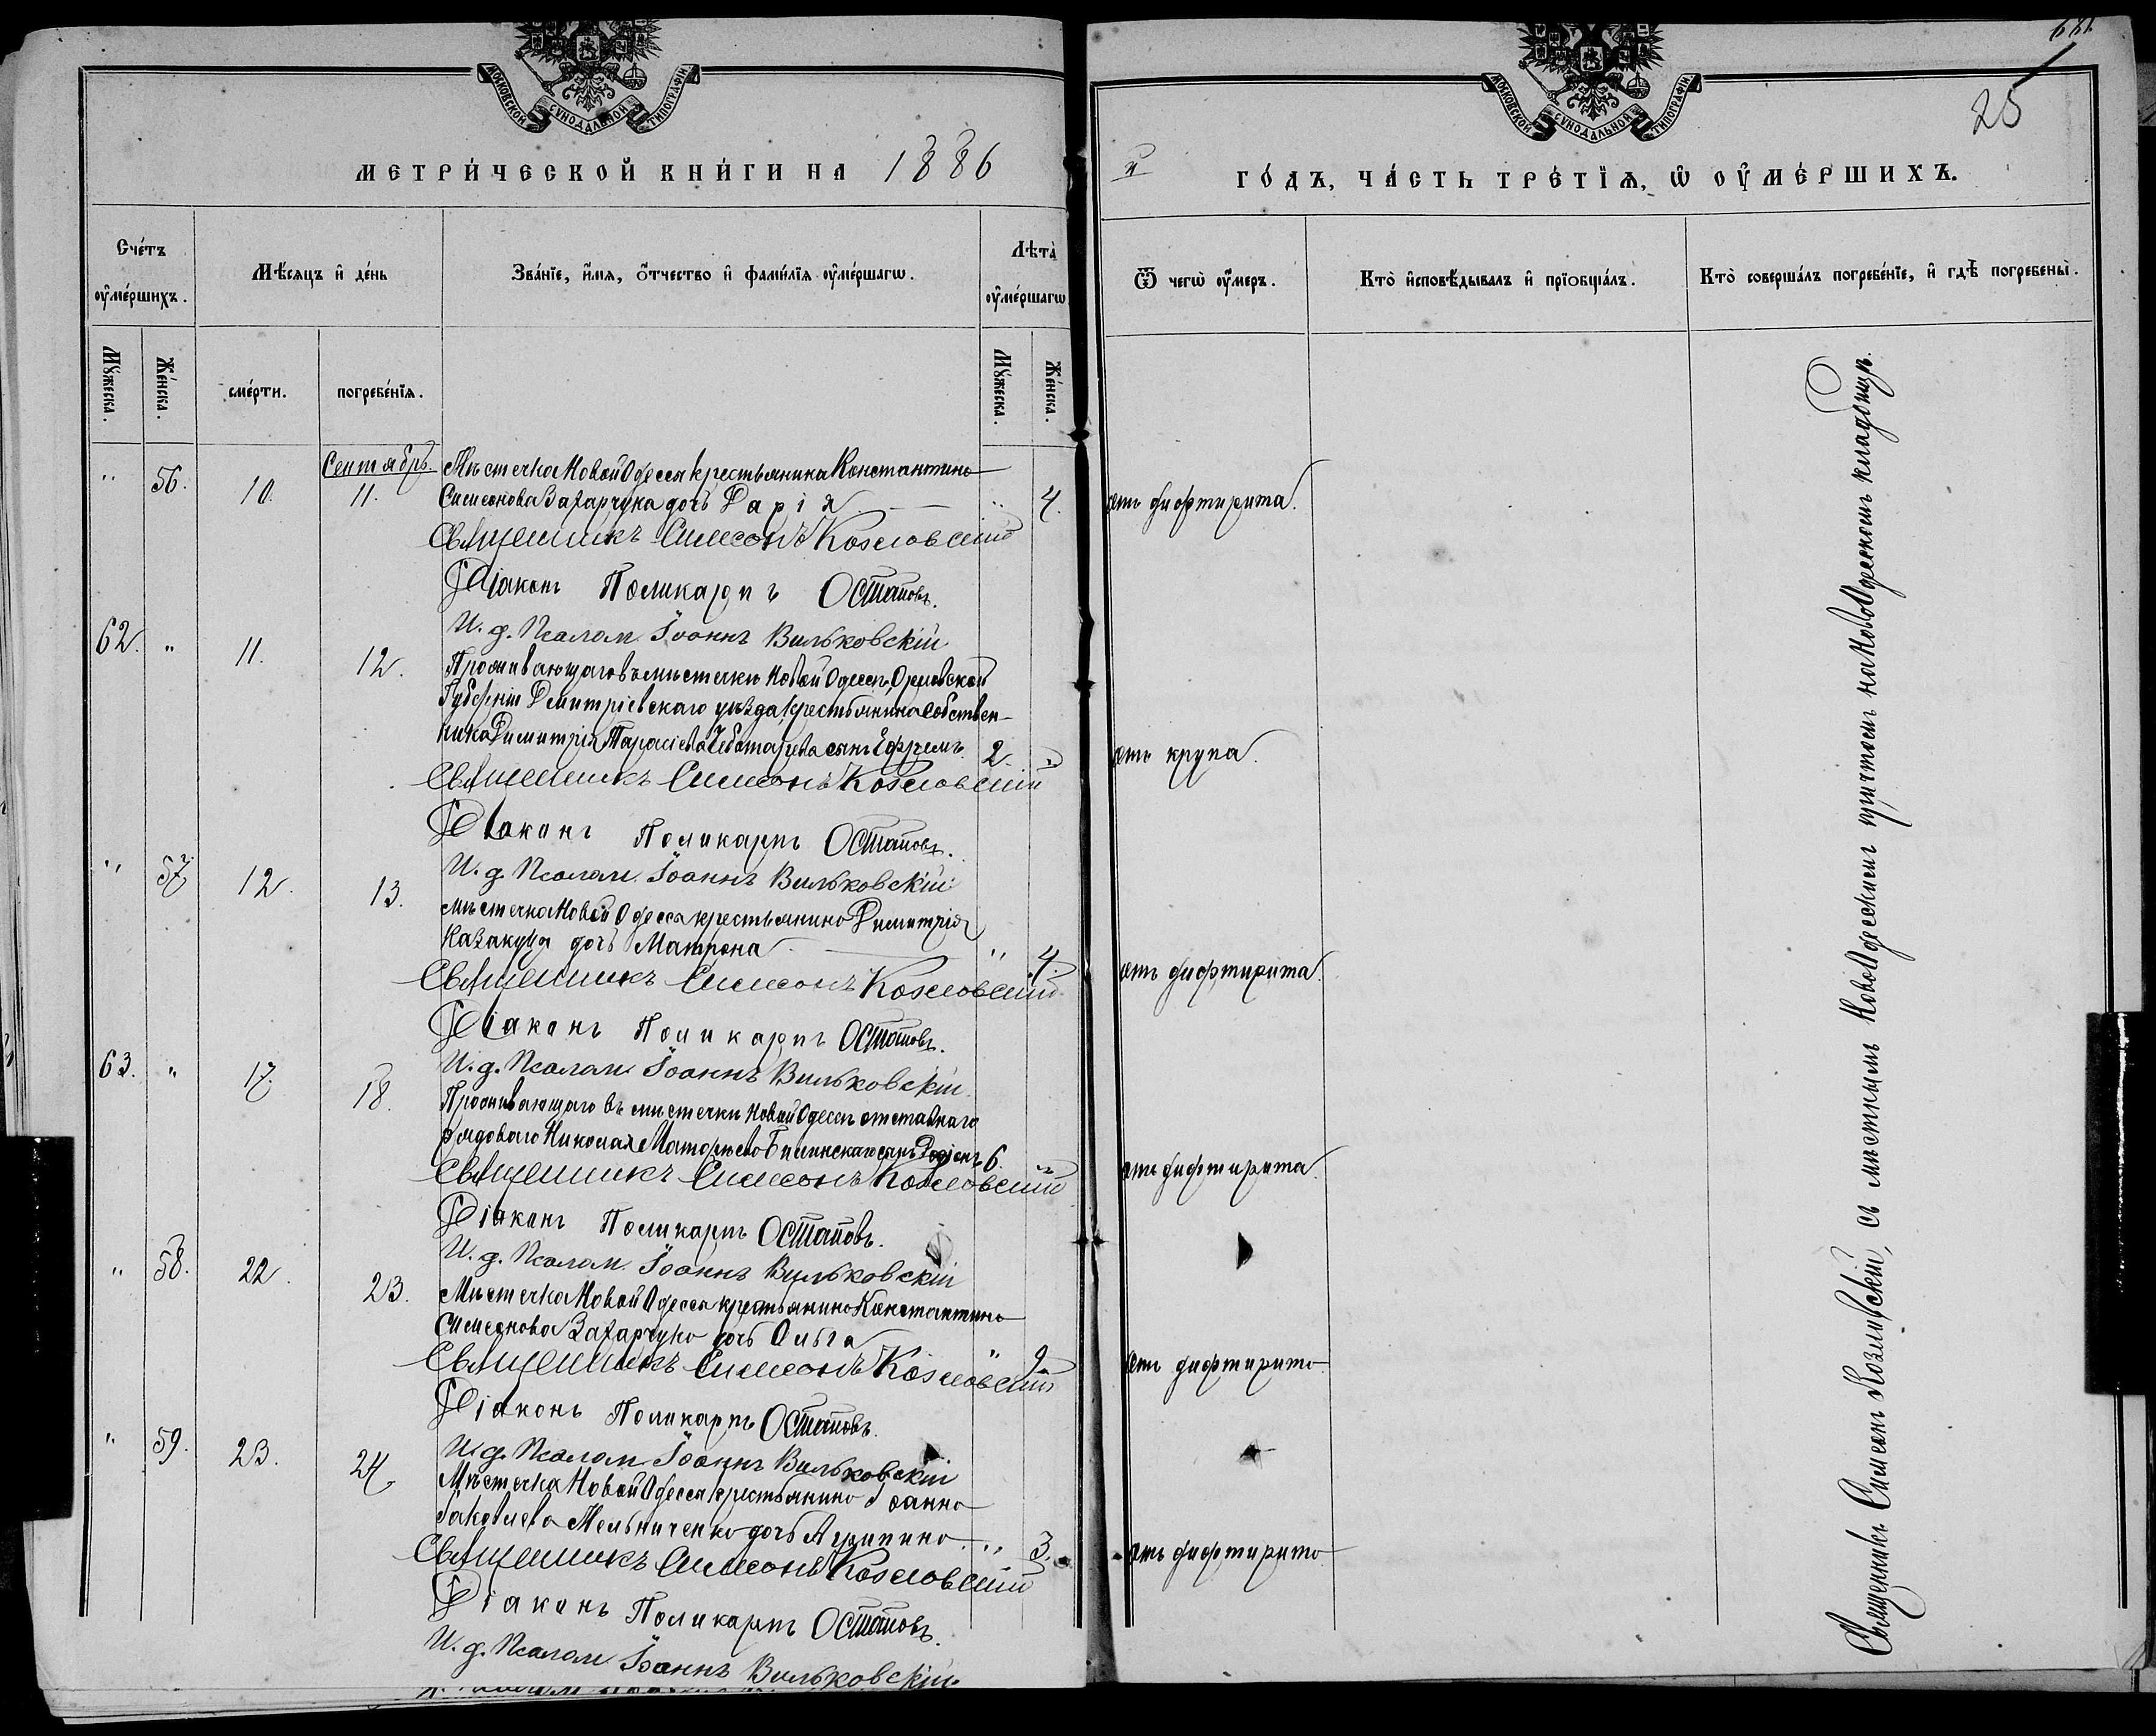 МОСКОВСКОЙ СѴНОДАЛЬНОЙ ТИПОГРАФІИ
МЕТРИ́ЧЕСКОЙ КНИ́ГИ НА 1886
Сче́тъ оу҆ме́ршихъ.
Мѣ́сяцъ и҆ де́нь
Зва́нїе, и҆́мя, ѻ҆́тчество и҆ фами́лїя оу҆ме́ршагѡ.
Лѣта̀ оу҆ме́ршагѡ
Мꙋ́жеска.
Же́нска.
сме́рти.
погребе́нїя.
Мꙋ́жеска.
Же́нска.
Сентябрь.
" 56. 10. 11. Мѣстечка Новой Одессы крестьянина Константина
Симеонова Захарчука дочь Дарія " 4.
Священникъ Симеонъ Козловскій
Діаконъ Поликарпъ Остаповъ.
И. д. Псалом. Іоаннъ Вильковскій
62. " 11. 12. Проживающаго въ мѣстечкѣ Новой Одессѣ, Орловской
Губерніи Дмитріевскаго уѣзда, крестьянина собствен-
ника Димитрія Тарасіева Чеботарева сынъ Ефремъ. 2 "
Священникъ Симеонъ Козловскій
Діаконъ Поликарпъ Остаповъ.
И. д. Псалом. Іоаннъ Вильковскій
" 57. 12. 13. мѣстечка Новой Одессы крестьянина Димитрія
Казакуца дочь Матрона " 4.
Священникъ Симеонъ Козловскій
Діаконъ Поликарпъ Остаповъ.
И. д. Псалом. Іоаннъ Вильковскій
63. " 17. 18. Проживающаго въ мѣстечкѣ Новой Одессѣ отставнаго
рядоваго Николая сынъ Родіонъ 6. "
Священникъ Симеонъ Козловскій
Діаконъ Поликарпъ Остаповъ.
И. д. Псалом. Іоаннъ Вильковскій
" 58. 22. 23. Мѣстечка Новой Одессы крестьянина Константина
Симеонова Захарчука дочь Ольга " 9.
Священникъ Симеонъ Козловскій
Діаконъ Поликарпъ Остаповъ.
И. д. Псалом. Іоаннъ Вильковскій
" 59. 23. 24. Мѣстечка Новой Одессы крестьянина Іоанна
Іаковлева Мельниченко дочь Агрипина " 3.
Священникъ Симеонъ Козловскій
Діаконъ Поликарпъ Остаповъ.
И. д. Псалом. Іоаннъ Вильковскій.
МОСКОВСКОЙ СѴНОДАЛЬНОЙ ТИПОГРАФІИ
25
й
ГО́ДЪ, ЧА́СТЬ ТРЕ́ТЇѦ, Ѡ ОУ҆МЕ́РШИХЪ.
Ѿ чегѡ̀ оу҆́меръ.
Кто̀ и҆сповѣ́дывалъ и҆ прїобща́лъ.
Кто̀ соверша́лъ погребе́нїе, и҆ гдѣ̀ погребены̀.
отъ дифтирита.
отъ крупа.
отъ дифтирита.
отъ дифтирита.
отъ дифтирита
отъ дифтирита
Священникъ Симеонъ Козловскій, съ мѣстнымъ Новоодесскимъ причтомъ на Новоодесскомъ кладбищѣ.